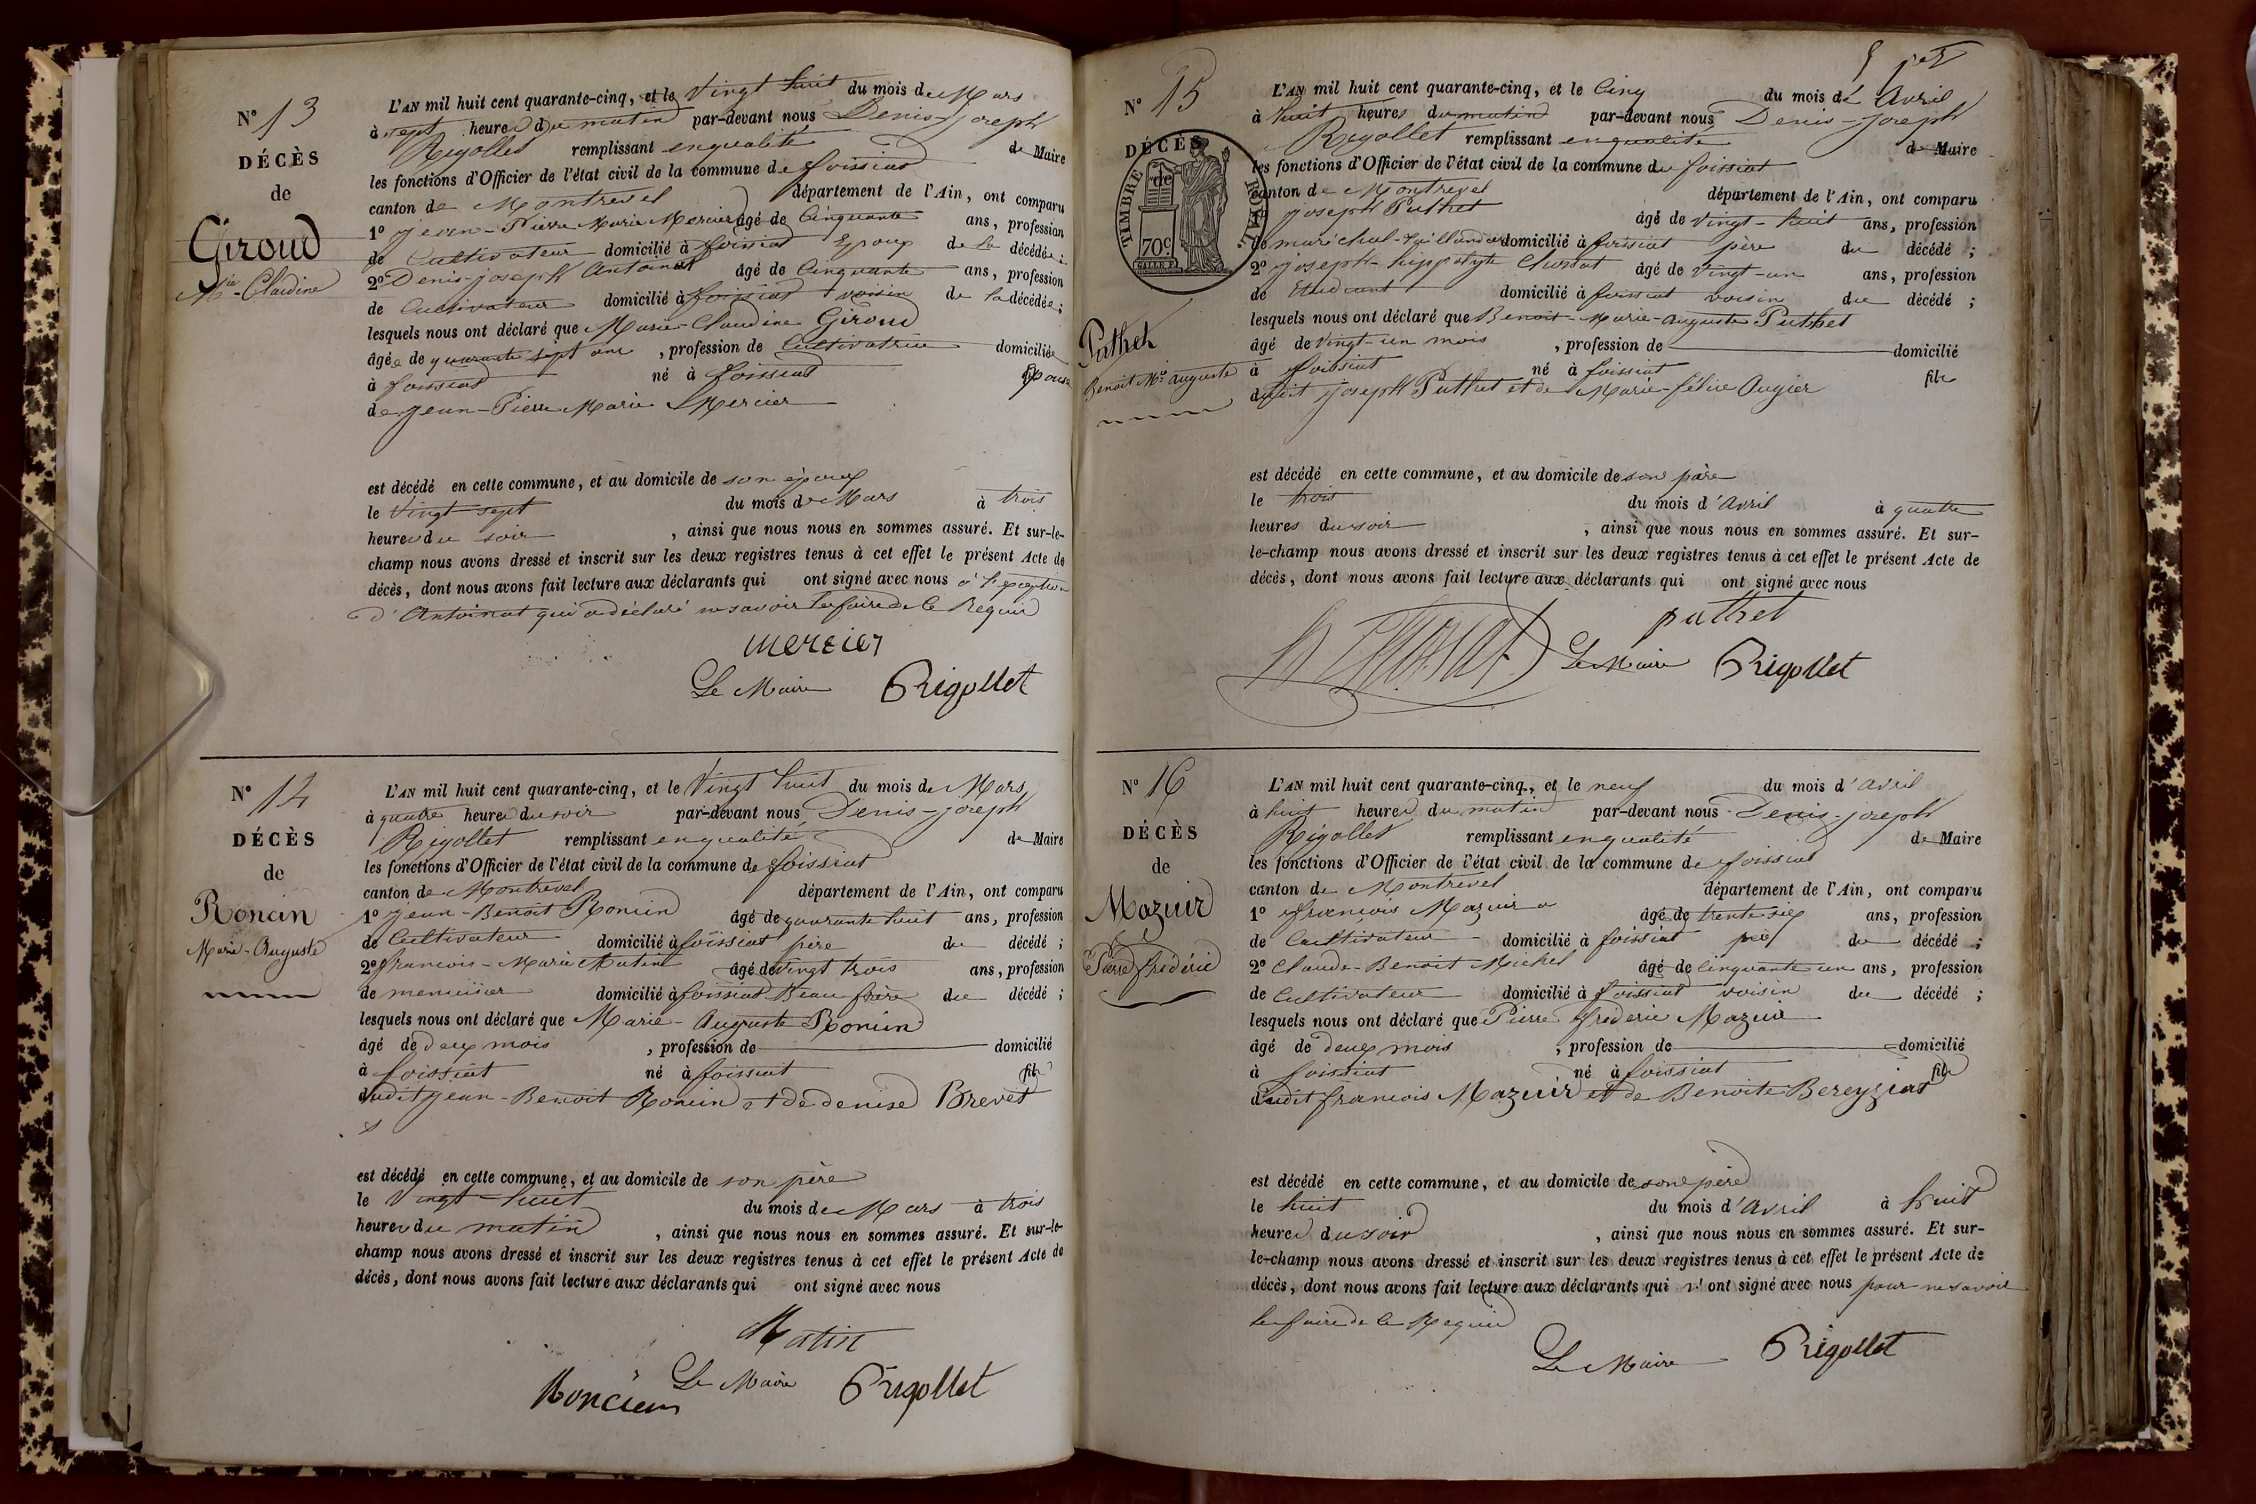 N° 13
DÉCÈS
de
Giroud
Mie-Claudine
L'AN mil huit cent quarante-cinq, et le Vingt huit du mois de Mars
à sept heures du matin par-devant nous Denis-joseph
Rigollet remplissant en qualité de Maire
les fonctions d'Officier de l'état civil de la commune de foissiat
canton de Montrevel département de l'Ain, ont comparu
1° jean-Pierre Marie Mercier âgé de Cinquante ans, profession
de Cultivateur domicilié à foissiat Epoux de la décédée ;
2° Denis-joseph Antoinat âgé de Cinquante ans, profession
de Cultivateur domicilié à foissiat voisin de la décédée ;
lesquels nous ont déclaré que Marie-Claudine Giroud
âgée de quarante sept ans , profession de Cultivatrice domiciliée
à foissiat né à foissiat Epouse
de jean-Pierre Marie Mercier
est décédé en cette commune, et au domicile de son époux
le Vingt sept du mois de Mars à trois
heures du soir , ainsi que nous nous en sommes assuré. Et sur-le-
champ nous avons dressé et inscrit sur les deux registres tenus à cet effet le présent Acte de
décès, dont nous avons fait lecture aux déclarants qui ont signé avec nous à l'exception
d'Antoinat qui a déclaré ne savoir le faire de ce Requis
mercier
Le Maire Rigollet
N° 14
DÉCÈS
de
Roncin
Marie-Auguste
L'AN mil huit cent quarante-cinq, et le Vingt huit du mois de Mars
à quatre heures du soir par-devant nous Denis-joseph
Rigollet remplissant en qualité de Maire
les fonctions d'Officier de l'état civil de la commune de foissiat
canton de Montrevel département de l'Ain, ont comparu
1° jean-Benoit Roncin âgé de quarante huit ans, profession
de Cultivateur domicilié à foissiat père du décédé ;
2° françois-Marie Matin âgé de vingt trois ans, profession
de menuisier domicilié à foissiat Beau frère du décédé ;
lesquels nous ont déclaré que Marie-Auguste Roncin
âgé de deux mois , profession de domicilié
à foissiat né à foissiat fils
dudit jean-Benoit Roncin et de denise Brevet
est décédé en cette commune, et au domicile de son père
le Vingt-huit du mois de Mars à trois
heures du matin , ainsi que nous nous en sommes assuré. Et sur-le-
champ nous avons dressé et inscrit sur les deux registres tenus à cet effet le présent Acte de
décès, dont nous avons fait lecture aux déclarants qui ont signé avec nous
Matin
Roncin Le Maire Rigollet
N° 15
DÉCÈS
de
TIMBRE ROYAL.
70c
Puthet
Benoit Mie auguste
L'AN mil huit cent quarante-cinq, et le Cinq du mois d'Avril
à huit heures du matin par-devant nous Denis-joseph
Rigollet remplissant en qualité de Maire
les fonctions d'Officier de l'état civil de la commune de foissiat
canton de Montrevel département de l'Ain, ont comparu
joseph Puthet âgé de vingt-huit ans, profession
de maréchal-taillandier domicilié à foissiat père du décédé ;
2° joseph-hippolyte Chossat âgé de Vingt-un ans, profession
de Etudiant domicilié à foissiat voisin du décédé ;
lesquels nous ont déclaré que Benoit-Marie-auguste Puthet
âgé de Vingt-un mois , profession de domicilié
à foissiat né à foissiat fils
dudit joseph Puthet et de Marie-félixe Augier
est décédé en cette commune, et au domicile de son père
le trois du mois d'Avril à quatre
heures du soir , ainsi que nous nous en sommes assuré. Et sur-
le-champ nous avons dressé et inscrit sur les deux registres tenus à cet effet le présent Acte de
décès, dont nous avons fait lecture aux déclarants qui ont signé avec nous
puthet
H Chossat Le Maire Rigollet
N° 16
DÉCÈS
de
Mazuir
Pierre frédéric
L'AN mil huit cent quarante-cinq, et le neuf du mois d'Avril
à huit heures du matin par-devant nous Denis-joseph
Rigollet remplissant en qualité de Maire
les fonctions d'Officier de l'état civil de la commune de foissiat
canton de Montrevel département de l'Ain, ont comparu
1° françois Mazuir âgé de trente six ans, profession
de Cultivateur domicilié à foissiat père du décédé ;
2° Claude-Benoit Michel âgé de Cinquante un ans, profession
de Cultivateur domicilié à foissiat voisin du décédé ;
lesquels nous ont déclaré que Pierre frédéric Mazuir
âgé de deux mois , profession de domicilié
à foissiat né à foissiat fils
dudit françois Mazuir et de Benoite Bereyziat
est décédé en cette commune, et au domicile de son père
le huit du mois d'Avril à huit
heures du soir , ainsi que nous nous en sommes assuré. Et sur-
le-champ nous avons dressé et inscrit sur les deux registres tenus à cet effet le présent Acte de
décès, dont nous avons fait lecture aux déclarants qui n'ont signé avec nous pour ne savoir
le faire de ce Requis
Le Maire Rigollet